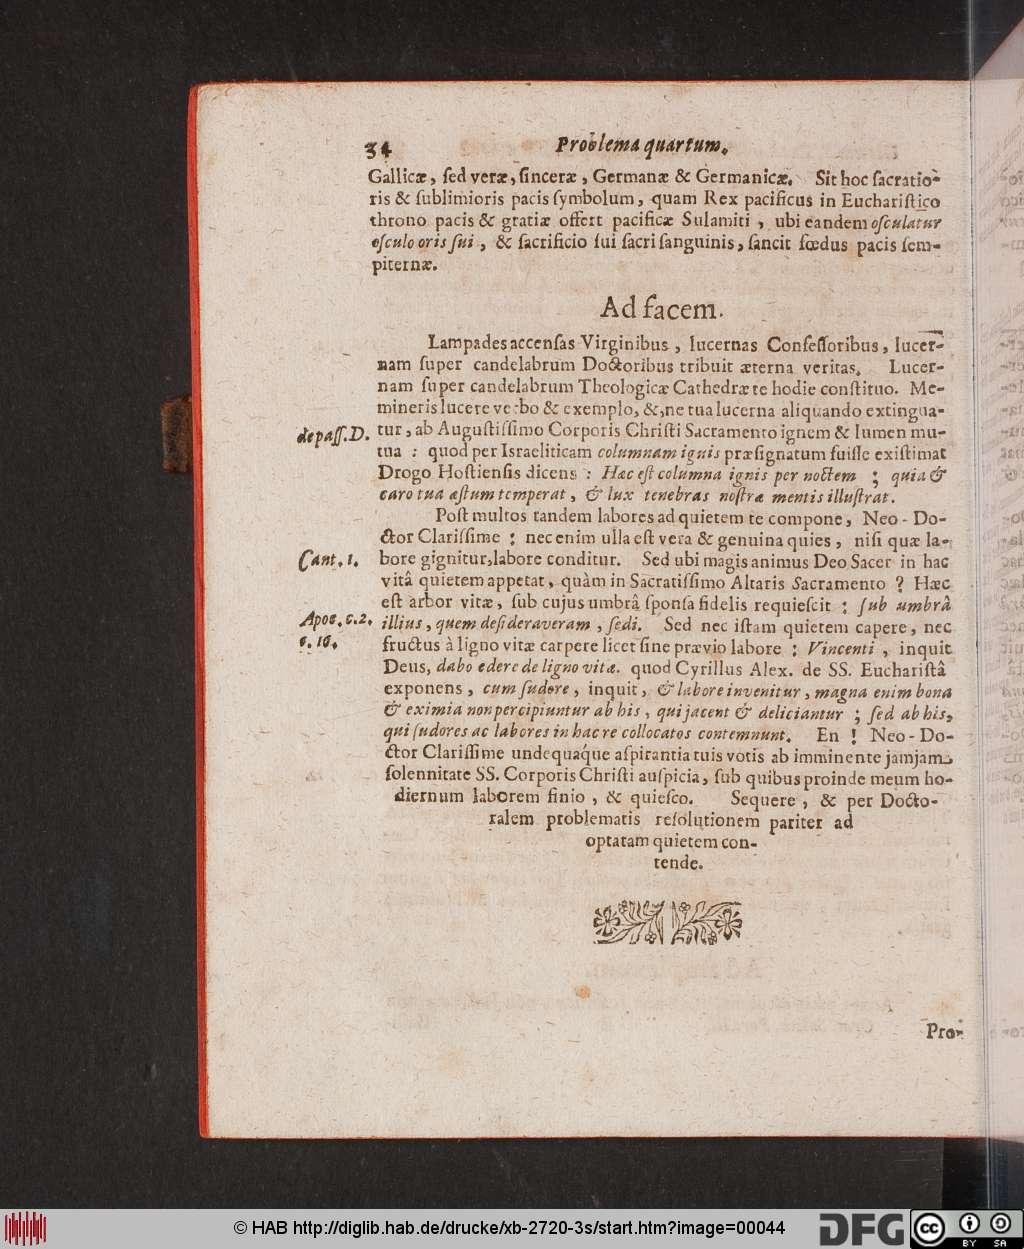 34
Problema quartum.
Gallicæ, ſed veræ, ſinceræ, Germanæ & Germanicæ. Sit hoc ſacratio-
ris & ſublimioris pacis ſymbolum, quam Rex pacificus in Euchariſtico
throno pacis & gratiæ offert pacificæ Sulamiti, ubi eandem oſculatur
oſculo oris ſui, & ſacrificio ſui ſacri ſanguinis, ſancit fœdus pacis ſem-
piternæ.
Ad facem.
Lampades accenſas Virginibus, lucernas Confeſſoribus, lucer-
nam ſuper candelabrum Doctoribus tribuit æterna veritas. Lucer-
nam ſuper candelabrum Theologicæ Cathedræ te hodie conſtituo. Me-
mineris lucere verbo & exemplo, &, ne tua lucerna aliquando extingua-
de paſſ. D. tur, ab Auguſtiſſimo Corporis Chriſti Sacramento ignem & lumen mu-
tua : quod per Israeliticam columnam ignis præſignatum fuiſſe exiſtimat
Drogo Hoſtienſis dicens : Hæc eſt columna ignis per noctem ; quia &
caro tua æſtum temperat, & lux tenebras noſtræ mentis illuſtrat.
Poſt multos tandem labores ad quietem te compone, Neo-Do-
ctor Clariſſime : nec enim ulla eſt vera & genuina quies, niſi quæ la-
Cant. 1. bore gignitur, labore conditur. Sed ubi magis animus Deo Sacer in hac
vitâ quietem appetat, quàm in Sacratiſſimo Altaris Sacramento ? Hæc
eſt arbor vitæ, ſub cujus umbrâ ſponſa fidelis requieſcit : ſub umbrâ
Apoc. c. 2. illius, quem deſideraveram, ſedi. Sed nec iſtam quietem capere, nec
fructus à ligno vitæ carpere licet ſine prævio labore : Vincenti, inquit
Deus, dabo edere de ligno vitæ. quod Cyrillus Alex. de SS. Euchariſtâ
exponens, cum ſudore, inquit, & labore invenitur, magna enim bona
& eximia non percipiuntur ab his, qui jacent & deliciantur ; ſed ab his,
qui ſudores ac labores in hac re collocatos contemnunt. En ! Neo-Do-
ctor Clariſſime undequáque aſpirantia tuis votis ab imminente jamjam
ſolennitate SS. Corporis Chriſti auſpicia, ſub quibus proinde meum ho-
diernum laborem finio, & quieſco. Sequere, & per Docto-
ralem problematis reſolutionem pariter ad
optatam quietem con-
tende.
Pro-
© HAB http://diglib.hab.de/drucke/xb-2720-3s/start.htm?image=00044
DFG
cc BY SA